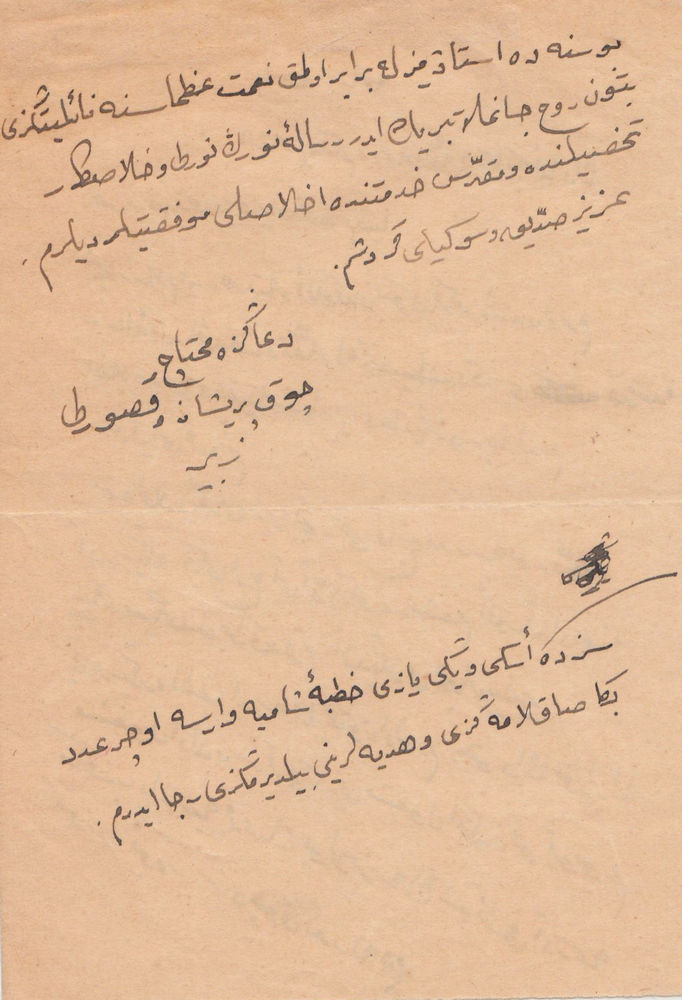 بو سنه ده استادیمزله برابر اولمق نعمت عظماسنه نائلیتڭزی
بتون روح جانمله تبریك ایدر رسالهٔ نورڭ نورلی و خلاصكار
تحصیلنده و مقدّس خدمتنده اخلاصلی موفقیتلر دیلرم .
عزیز صدّیق و سوكیلی قردشم .
دعاڭزه محتاج
چوق پریشان و قصورلی
زبیر
سزده أسكی و یڭی یازی خطبهٔ شامیه وارسه اوچر عدد
بڭا صاقلامه ڭزی و هدیه لرینی بیلدیرمڭزی رجا ایدرم .